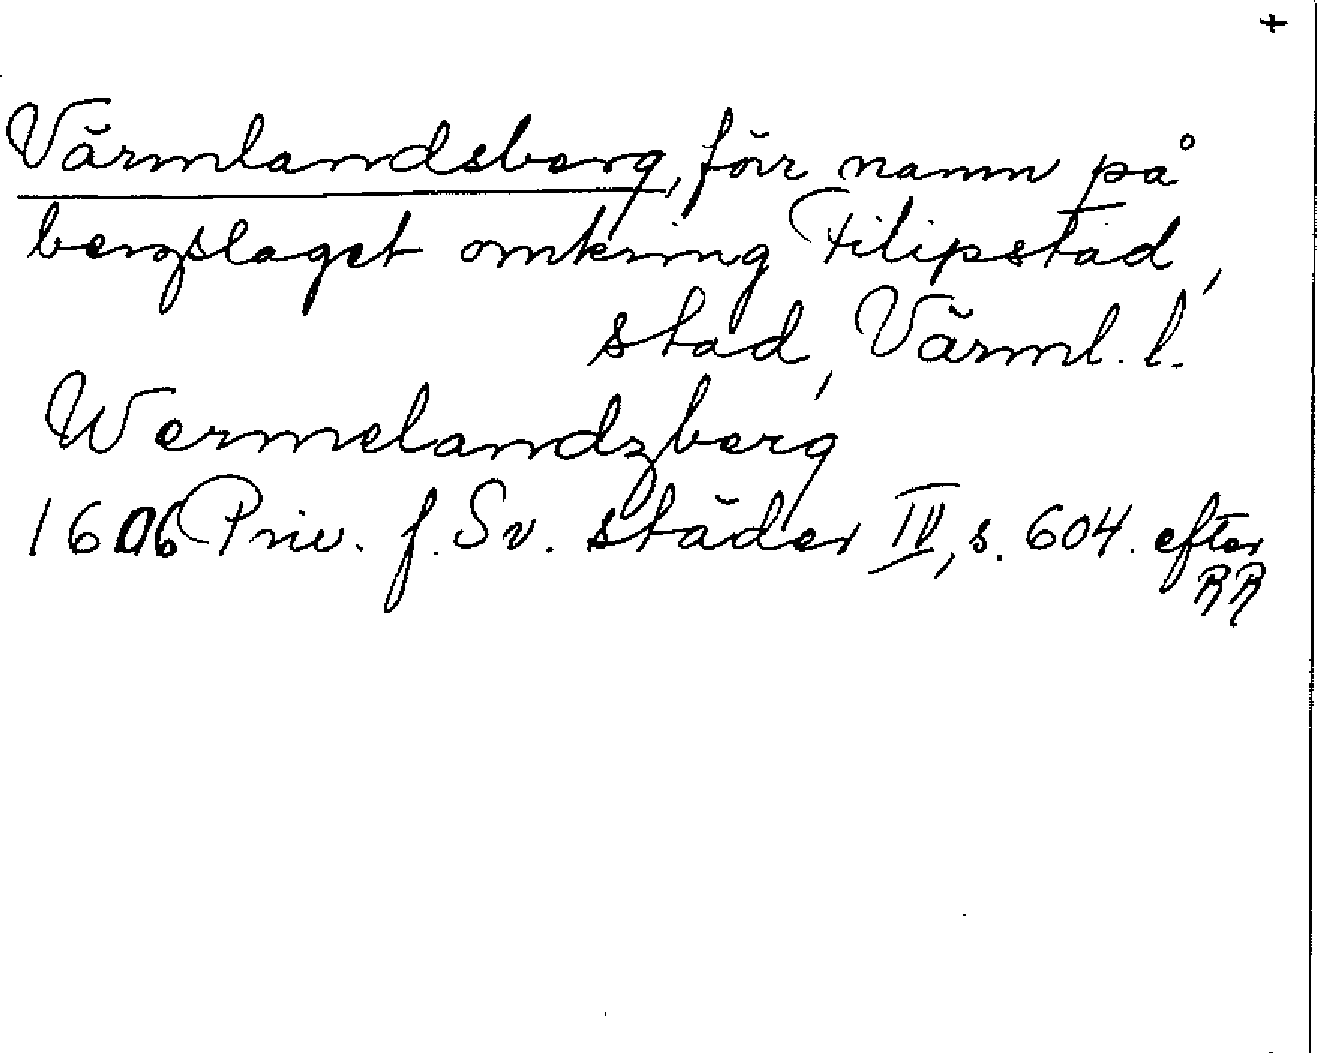 +
Värmlandsberg, förr namn på
bergslaget omkring Filipstad,
stad, Värml. l.
Wermelandzberg
1606 Priv. f. Sv. städer IV, s. 604. efter
RR